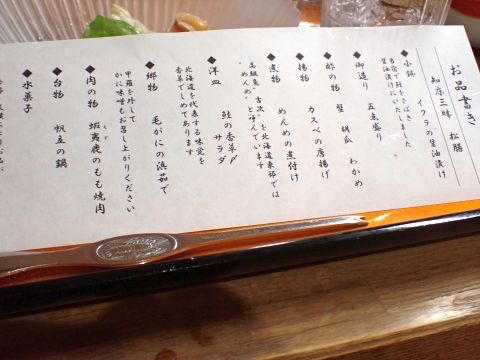 お品書き
知床三昧 松膳
◆小鉢 イクラの醤油漬け
当宿で鮭をさばきました
醤油漬けにいたしました
◆御造り 五点盛り
◆酢の物 蟹 胡瓜 わかめ
◆揚物 カスベの唐揚げ
◆煮物 めんめの煮付け
高級魚〝吉次〟を北海道東部では
〝めんめ〟と呼んでいます
◆洋皿 鮭の香草〆 サラダ
北海道を代表する味覚を
香草でしめてあります
◆郷物 毛がにの浜茹で
甲羅を外して
かに味噌もお召し上がりください
◆肉の物 蝦夷鹿のもも焼肉
◆台物 帆立の鍋
◆水菓子